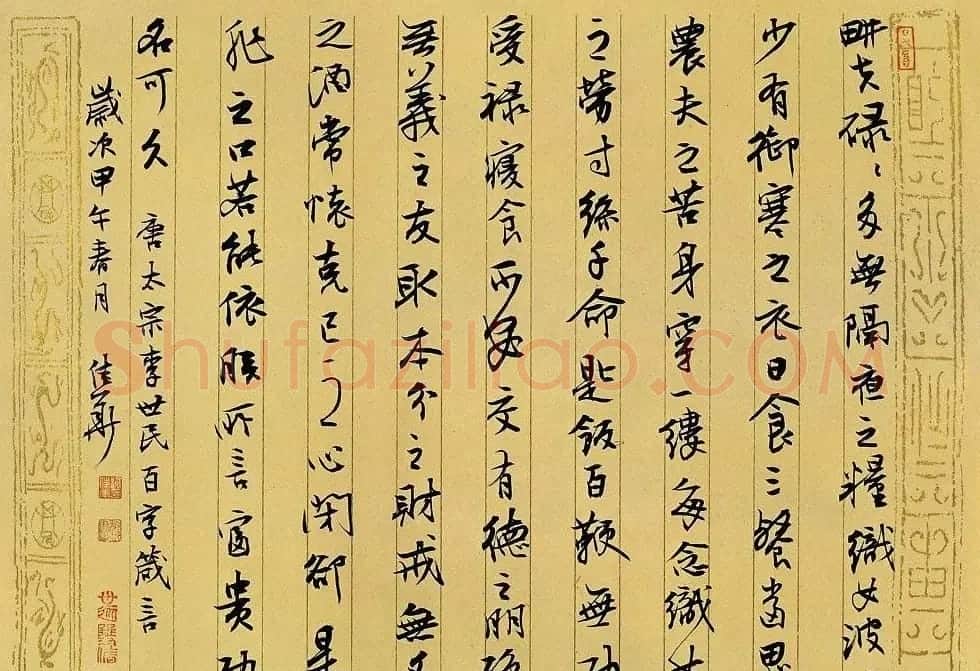 畊夫碌〻多無隔夜之糧織女波
少有御寒之衣日食三餐當思
農夫之苦身穿一縷每念織女
之勞寸絲千命匙飯百鞭無功
受禄寢食不安交有德之朋絶
無義之友取本分之財戒無名
之酒常懷克己之心閉卻是
非之口若能依朕所言富貴功
名可久 唐太宗李世民百字箴言
歲次甲午春月 佳
Shufaziliao.COM